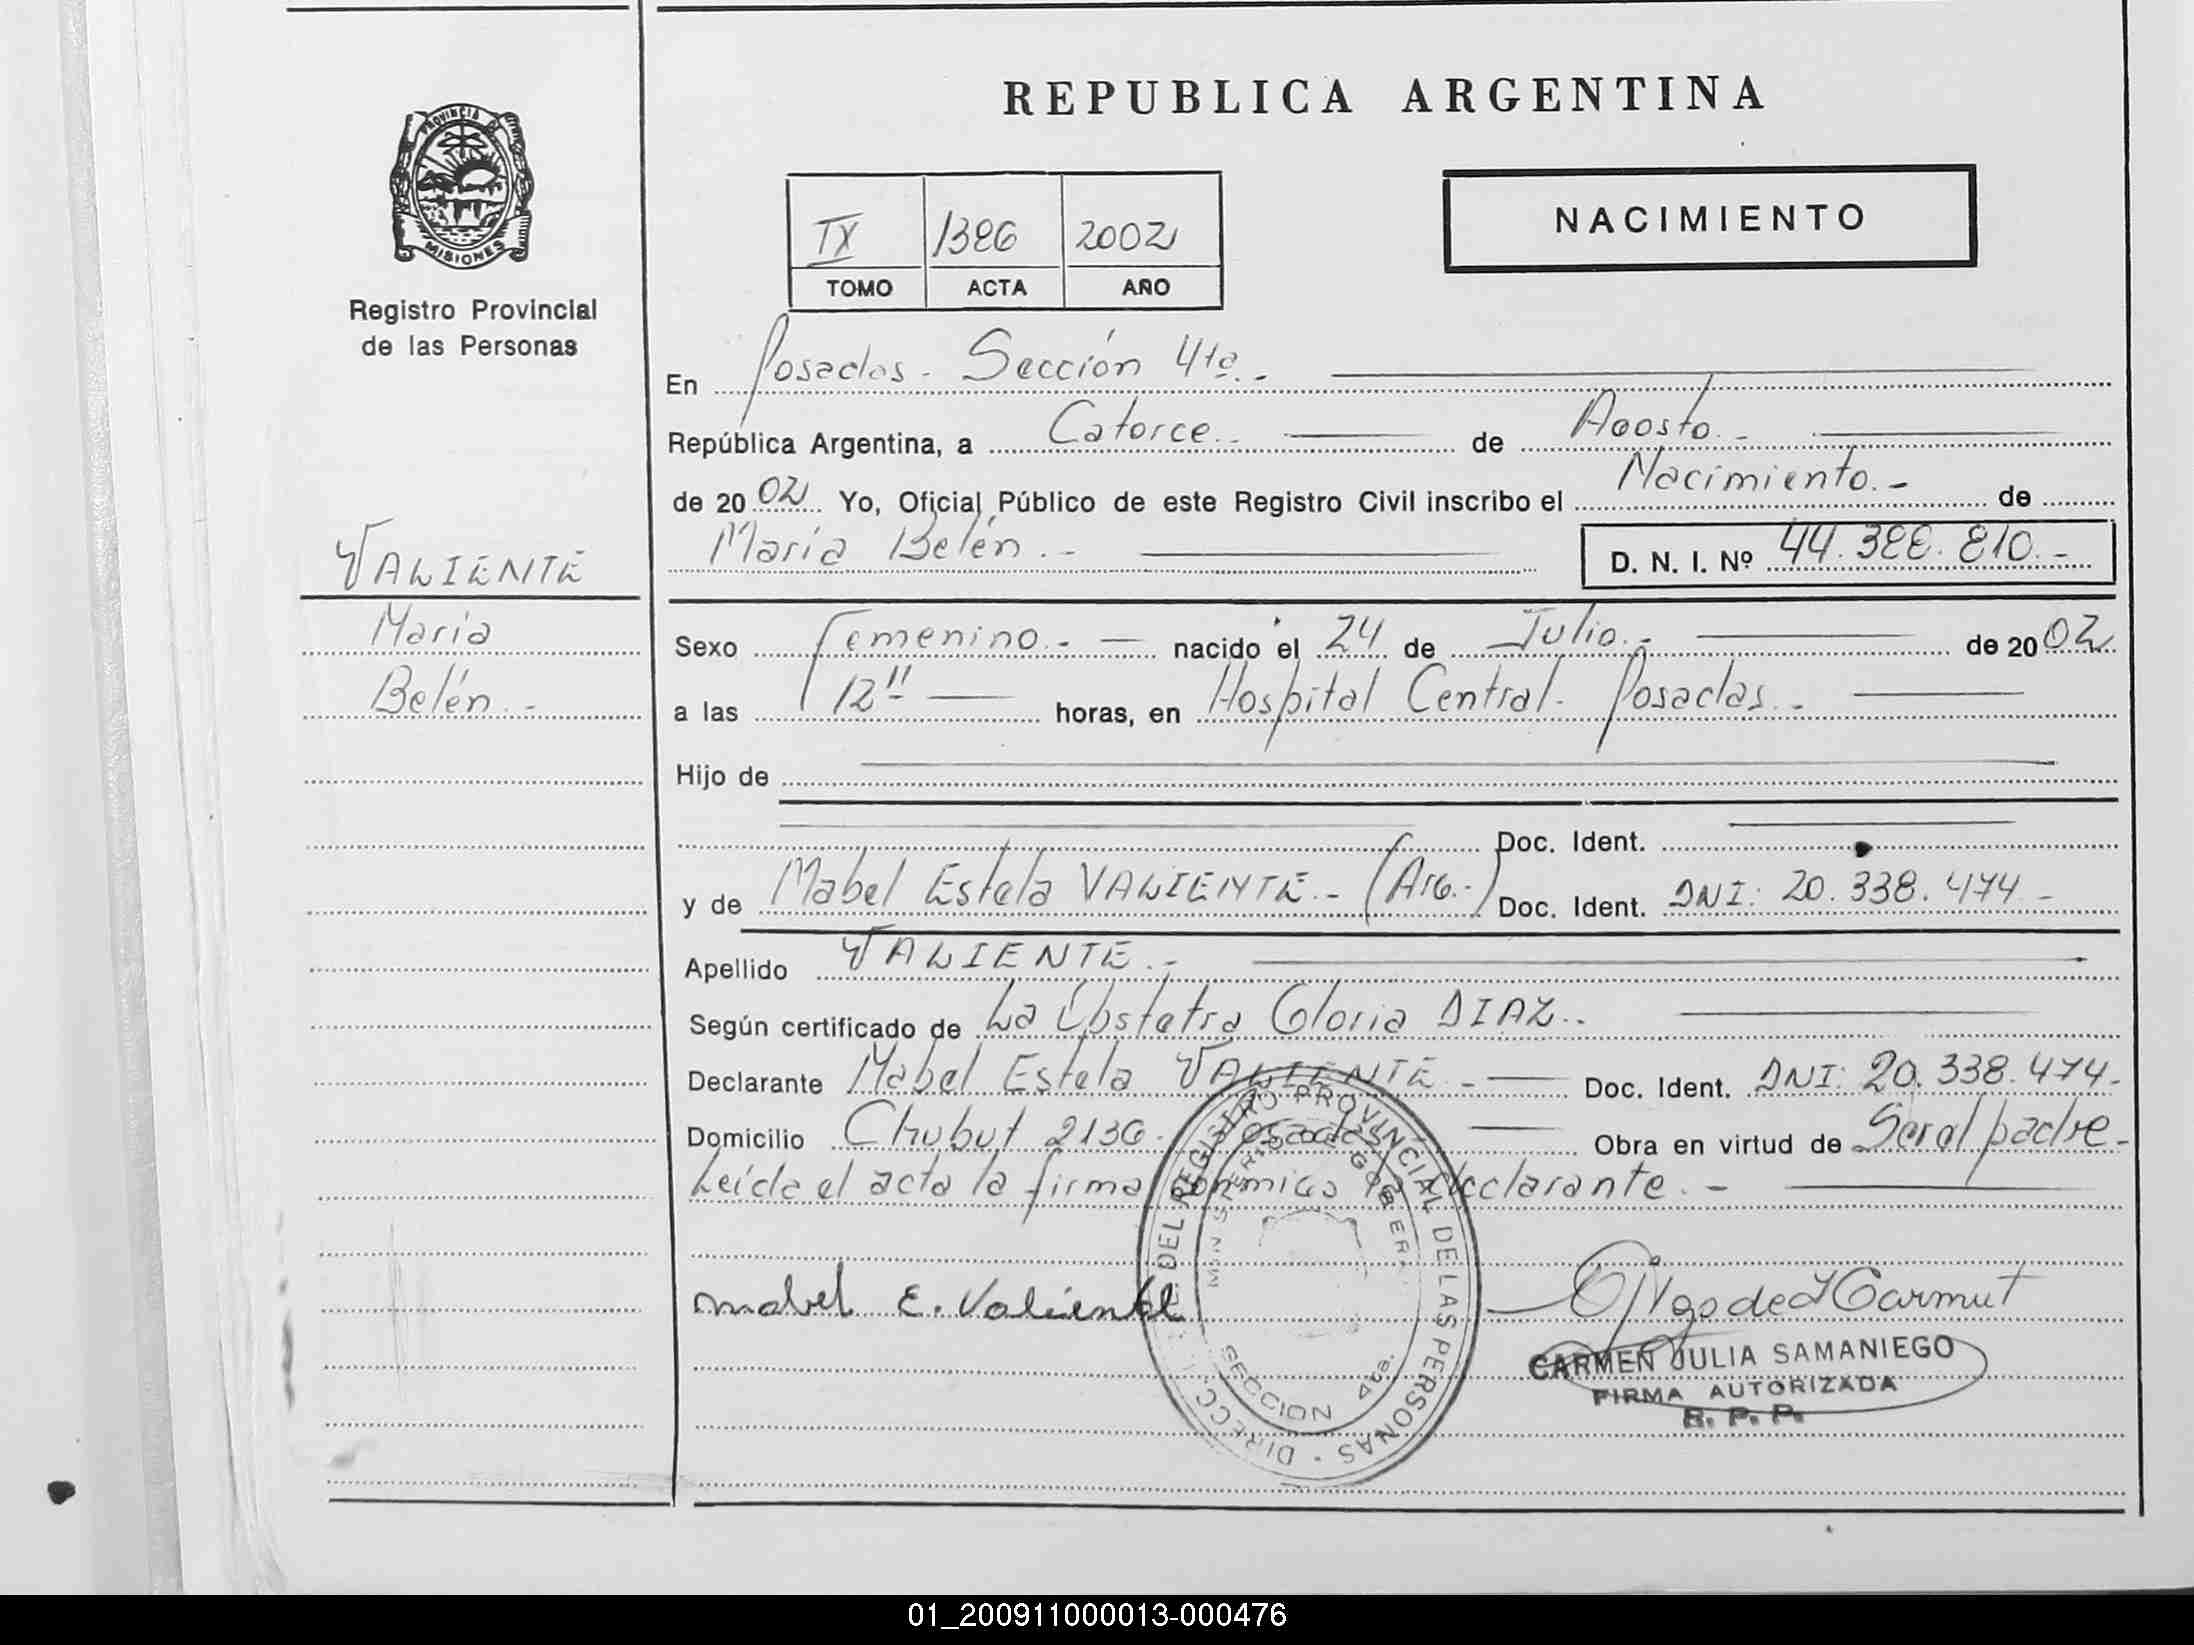 REPUBLICA ARGENTINA
PROVINCIA DE
MISIONES
Registro Provincial
de las Personas
NACIMIENTO
IX 1386 2002
TOMO ACTA AÑO
En Posadas - Sección 4ta. -
República Argentina, a Catorce. - de Agosto. -
de 2002 Yo, Oficial Público de este Registro Civil inscribo el Nacimiento. - de
María Belén. - D. N. I. Nº 44.388.810. -
VALIENTE
María
Belén. -
Sexo Femenino. - nacido el 24 de Julio. - de 2002
a las 12 horas, en Hospital Central - Posadas. -
Hijo de
Doc. Ident.
y de Mabel Estela VALIENTE. - (Arg. -) Doc. Ident. DNI: 20.338.474 -
Apellido VALIENTE. -
Según certificado de La Obstetra Gloria DIAZ. -
Declarante Mabel Estela VALIENTE - Doc. Ident. DNI: 20.338.474 -
Domicilio Chubut 2136 - Posadas - Obra en virtud de Ser el padre -
Leída el acta la firma conmigo la declarante. -
mabel E. Valiente
DIRECC. DEL REGISTRO PROVINCIAL DE LAS PERSONAS
MINISTERIO DE GOBIERNO
SECCION 4ta.
CARMEN JULIA SAMANIEGO
FIRMA AUTORIZADA
R. P. P.
01_200911000013-000476